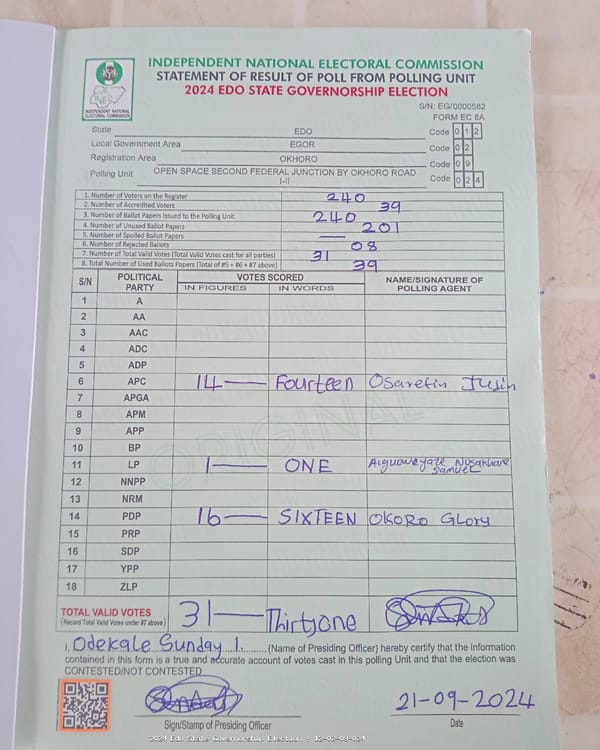 INDEPENDENT NATIONAL ELECTORAL COMMISSION
STATEMENT OF RESULT OF POLL FROM POLLING UNIT
2024 EDO STATE GOVERNORSHIP ELECTION
INDEPENDENT NATIONAL ELECTORAL COMMISSION
S/N: EG/0000582
FORM EC 8A
State EDO Code 0 1 2
Local Government Area EGOR Code 0 2
Registration Area OKHORO Code 0 9
Polling Unit OPEN SPACE SECOND FEDERAL JUNCTION BY OKHORO ROAD I-II Code 0 2 4
1. Number of Voters on the Register 240
2. Number of Accredited Voters 39
3. Number of Ballot Papers Issued to the Polling Unit 240
4. Number of Unused Ballot Papers 201
5. Number of Spoiled Ballot Papers —
6. Number of Rejected Ballots 08
7. Number of Total Valid Votes (Total Valid Votes cast for all parties) 31
8. Total Number of Used Ballots Papers (Total of #5 + #6 + #7 above) 39
S/N POLITICAL PARTY VOTES SCORED NAME/SIGNATURE OF POLLING AGENT
IN FIGURES IN WORDS
1 A
2 AA
3 AAC
4 ADC
5 ADP
6 APC 14 — Fourteen Osaretin
7 APGA
8 APM
9 APP
10 BP
11 LP 1 — ONE Samuel
12 NNPP
13 NRM
14 PDP 16 — SIXTEEN OKORO Glory
15 PRP
16 SDP
17 YPP
18 ZLP
ORIGINAL
TOTAL VALID VOTES 31 — Thirtyone
(Record Total Valid Votes under #7 above)
I, Odekale Sunday I. (Name of Presiding Officer) hereby certify that the information
contained in this form is a true and accurate account of votes cast in this polling Unit and that the election was
CONTESTED/NOT CONTESTED
21-09-2024
Sign/Stamp of Presiding Officer Date
2024 Edo State Governorship Election - 12-02-09-024